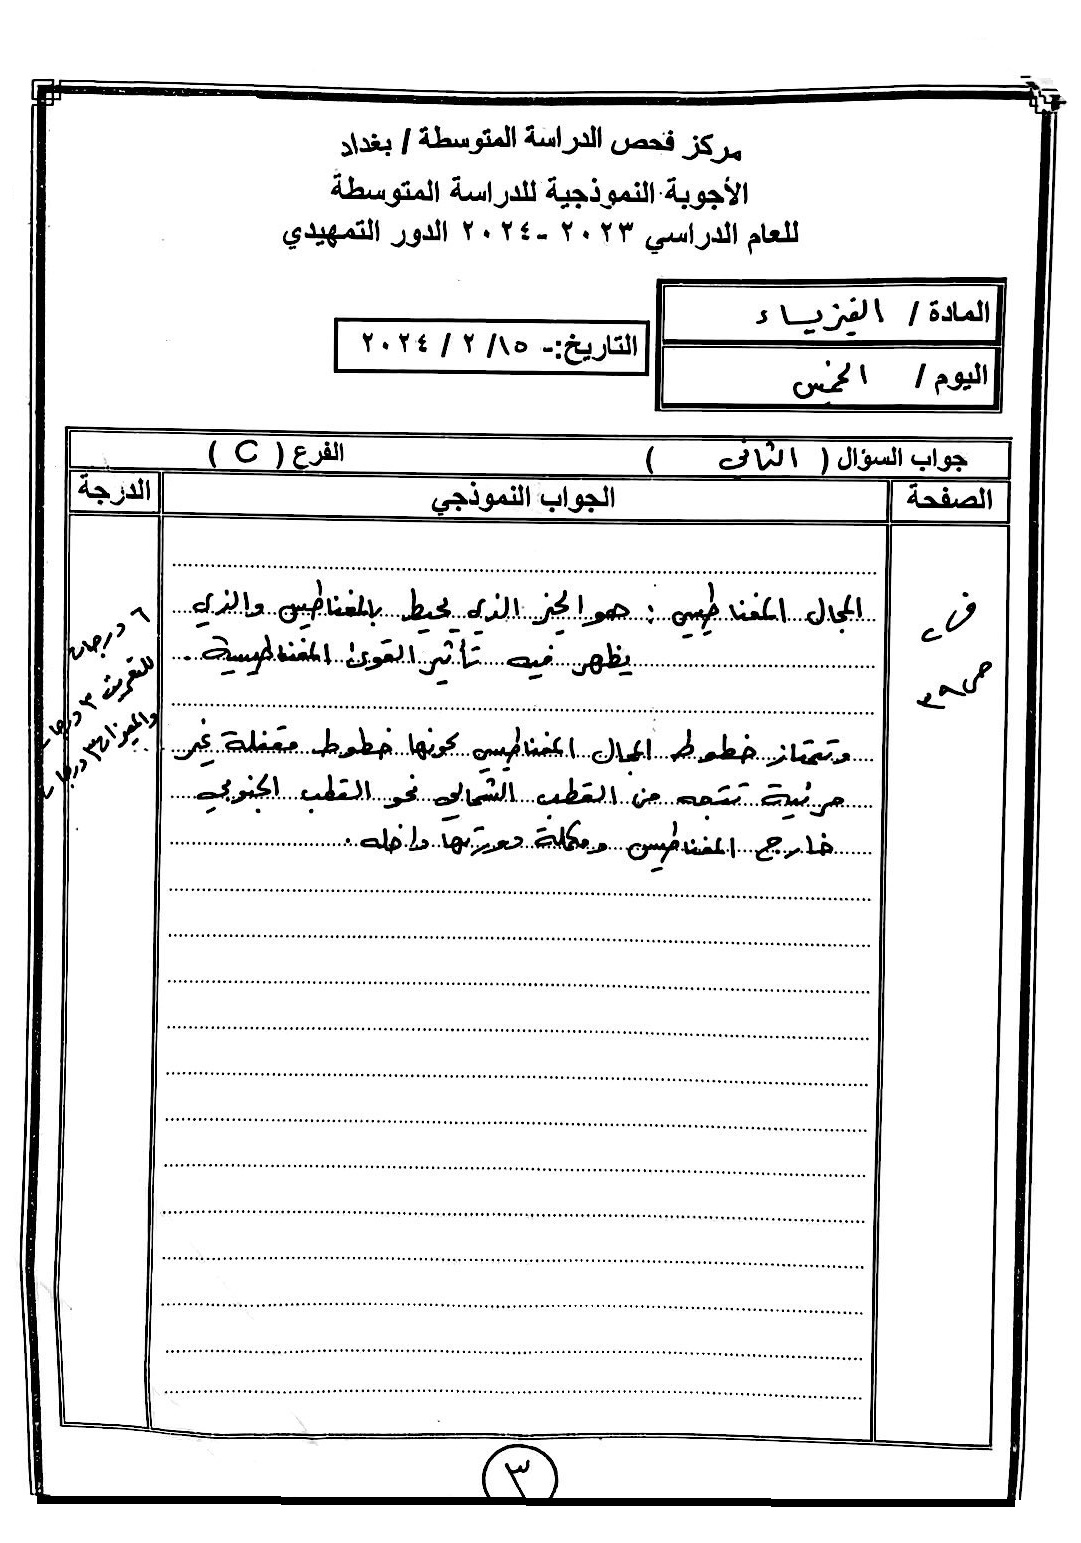 مركز فحص الدراسة المتوسطة / بغداد
الأجوبة النموذجية للدراسة المتوسطة
للعام الدراسي ٢٠٢٣ -٢٠٢٤ الدور التمهيدي
المادة / الفيزياء
اليوم / الخميس
التاريخ:- ١٥/ ٢ / ٢٠٢٤
جواب السؤال ( الثاني ) الفرع ( C )
الصفحة الجواب النموذجي الدرجة
المجال المغناطيسي : هو الحيز الذي يحيط بالمغناطيس والذي
يظهر فيه تأثير القوى المغناطيسية .
وتمتاز خطوط المجال المغناطيسي بكونها خطوط مقفلة غير
مرئية تتجه من القطب الشمالي نحو القطب الجنوبي
خارج المغناطيس ومكملة دورتها داخله .
ف٢
ص٣٩
٦ درجات
للتعريف ٣ درجات
والميزات ٣ درجات
٣